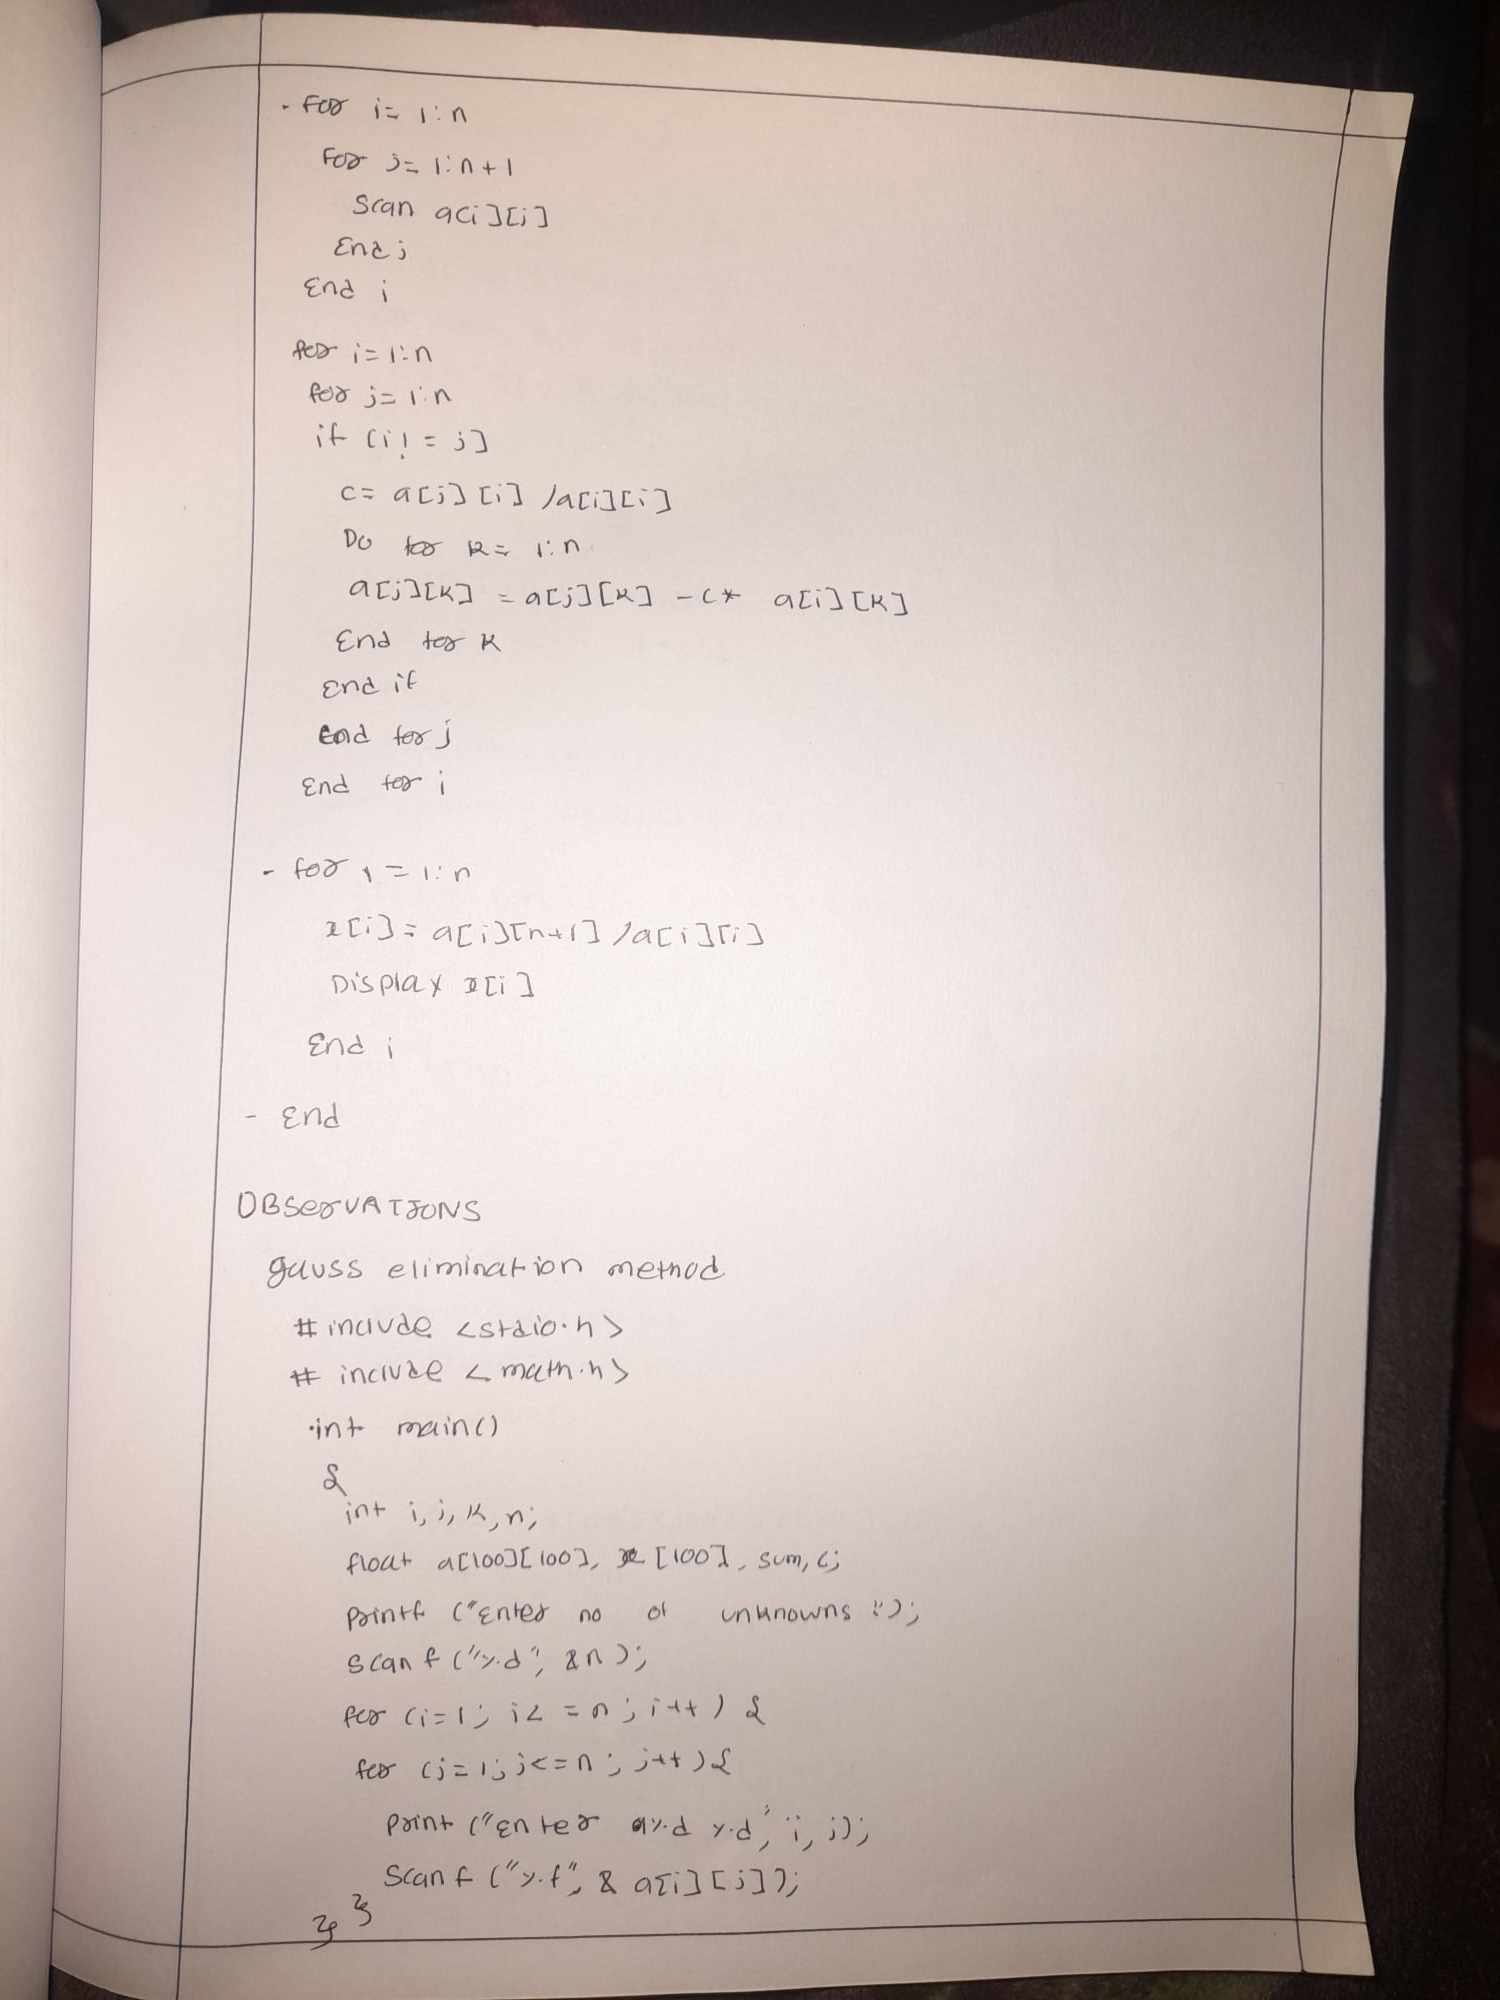 - For i= 1:n
For j= 1:n+1
Scan a[i][j]
End j
End i
for i=1:n
for j= 1:n
if (i! = j]
c= a[j][i] /a[i][i]
Do for k= 1:n
a[j][k] = a[j][k] - c* a[i][k]
End for k
End if
End for j
End for i
- for i = 1:n
x[i]= a[i][n+1] /a[i][i]
Display x[i]
End i
- End
OBSERVATIONS
gauss elimination method
# include <stdio.h>
# include < math.h>
int main()
{
int i, j, k, n;
float a[100][100], x [100], sum, c;
printf ("Enter no of unknowns :");
scanf ("%d", &n );
for (i=1; i< =n; i++ ) {
for (j=1; j<=n; j++ ){
print ("Enter a%d %d", i, j);
Scanf ("%f", & a[i][j]);
} }